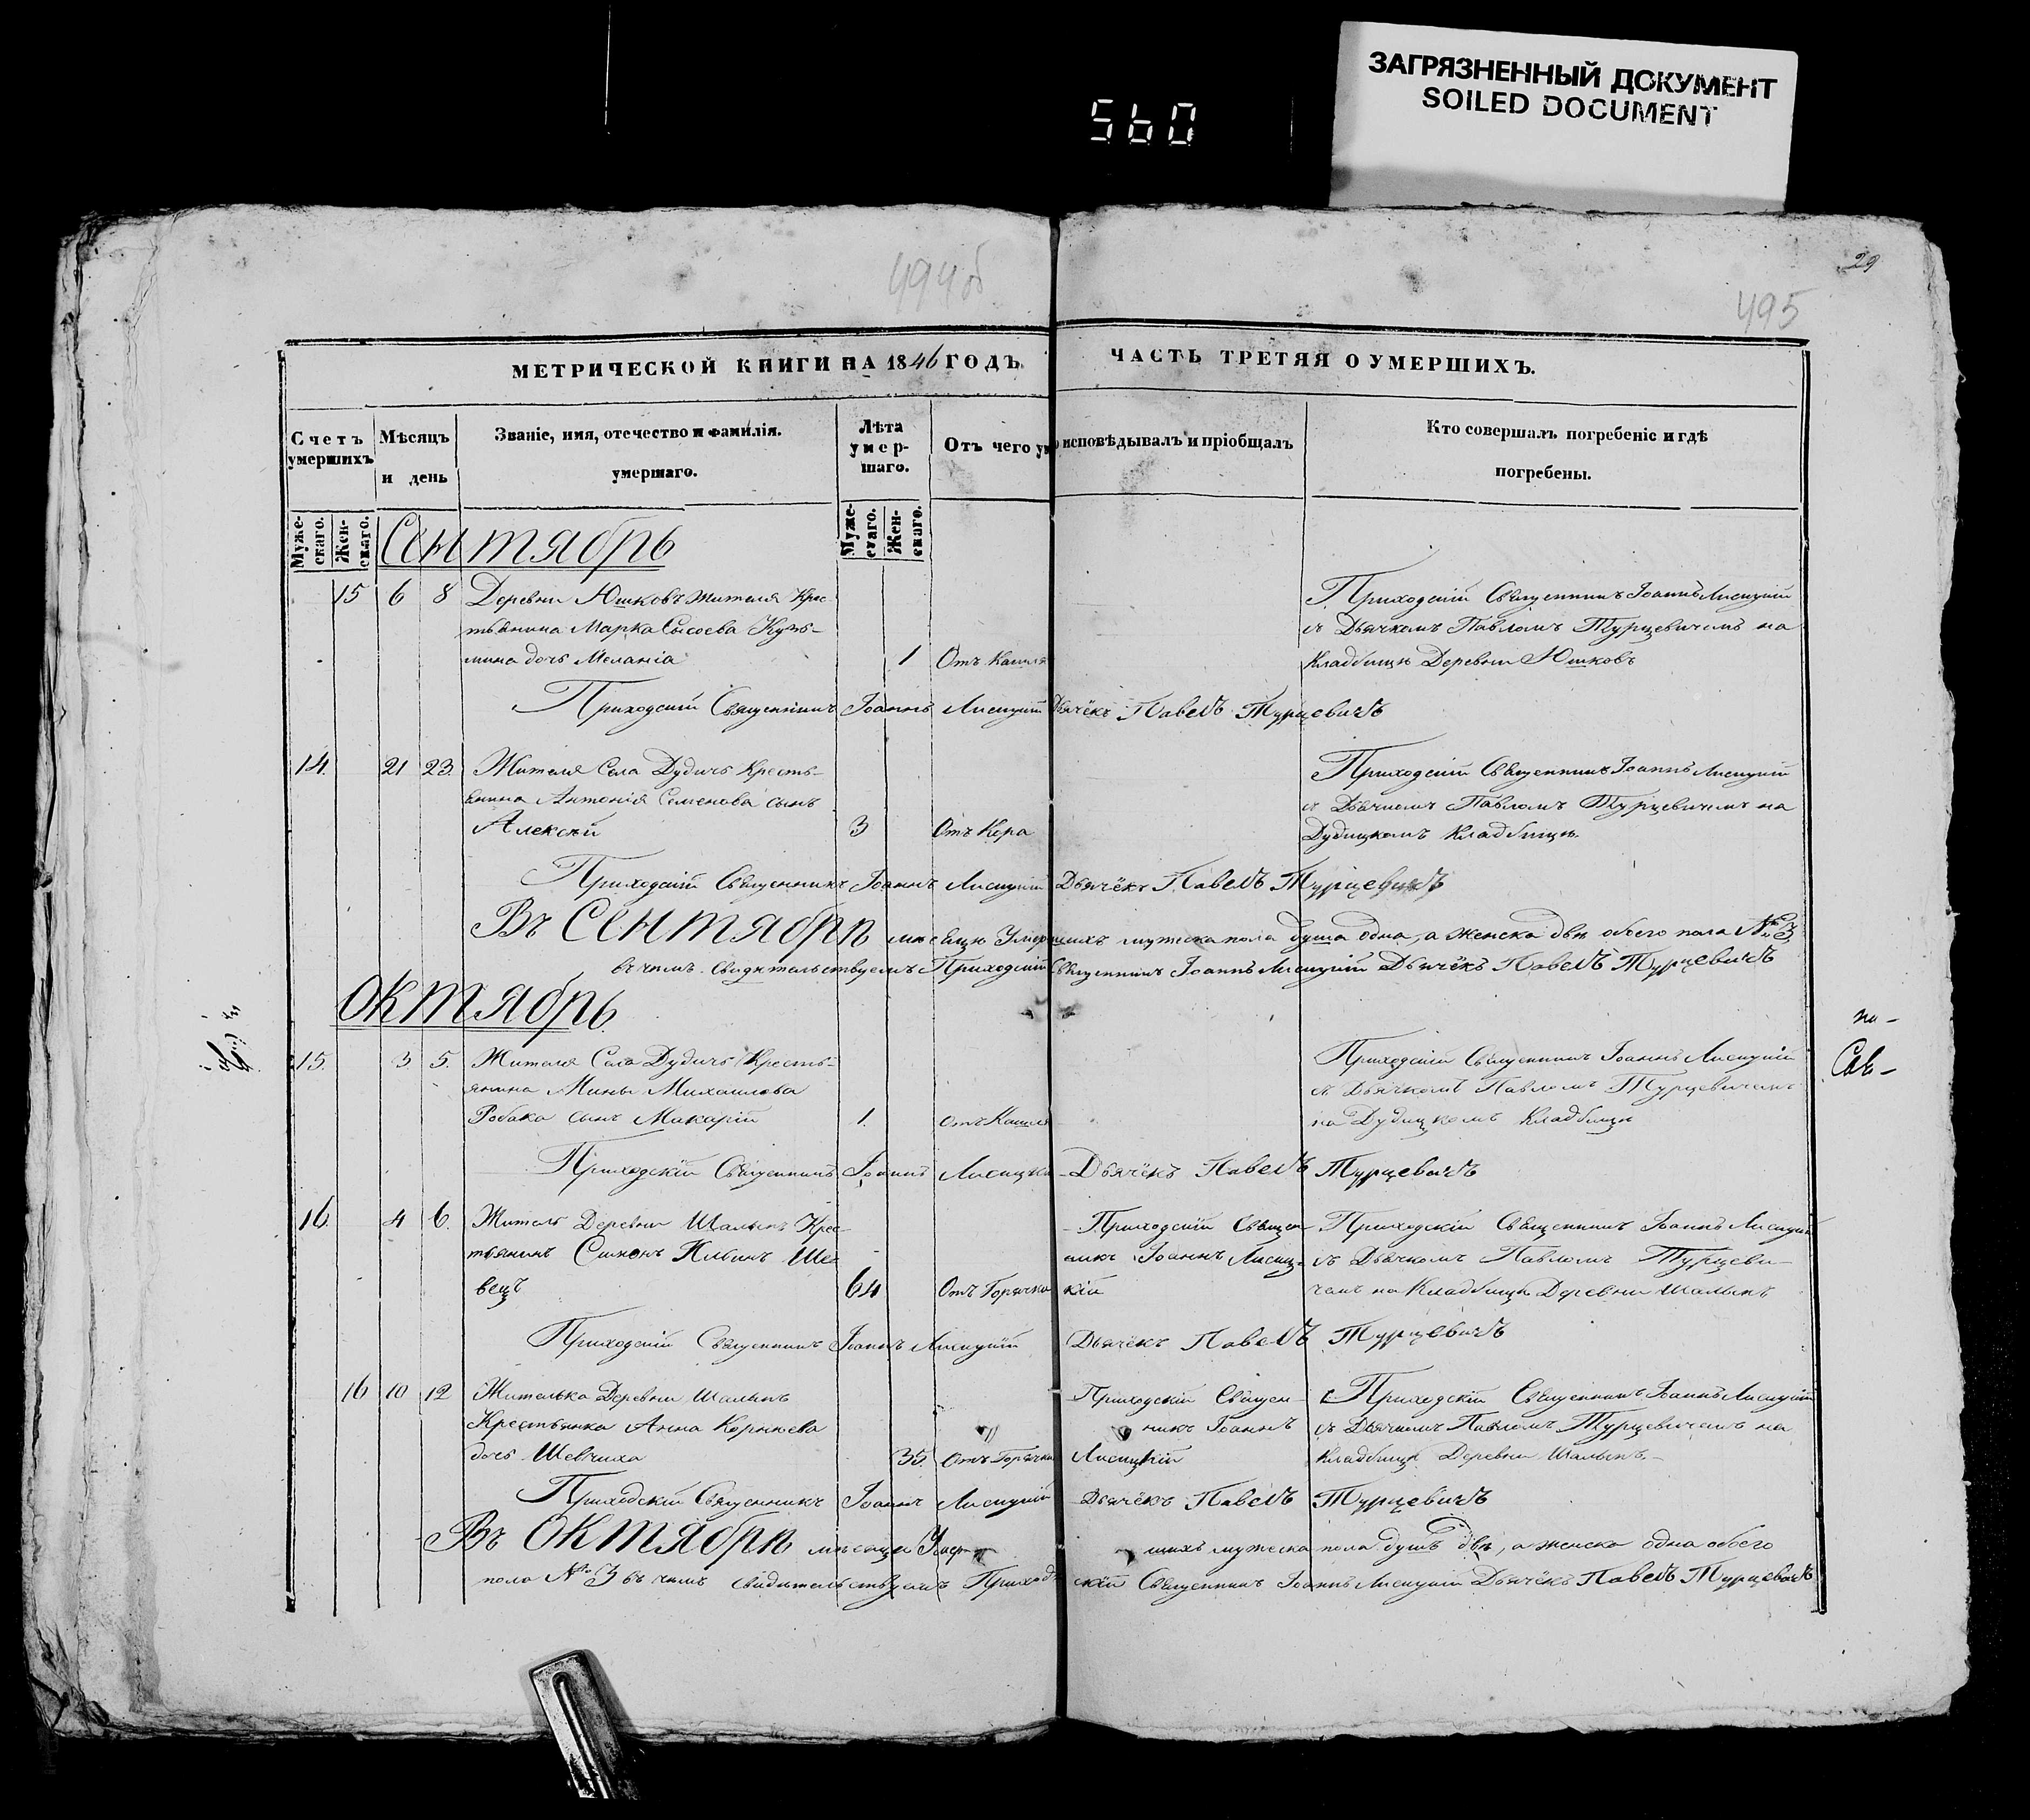 ЗАГРЯЗНЕННЫЙ ДОКУМЕНТ
SOILED DOCUMENT
560
494об
29
495
МЕТРИЧЕСКОЙ КНИГИ НА 1846 ГОДЪ. ЧАСТЬ ТРЕТЯЯ О УМЕРШИХЪ.
Счетъ умершихъ
Мѣсяцъ и день
Званіе, имя, отечество и фамилія. умершаго.
Лѣта умершаго.
Отъ чего ум
о исповѣдывалъ и пріобщалъ
Кто совершалъ погребеніе и гдѣ погребены.
Мужескаго. Женскаго.
Мужескаго. Женскаго.
Сентябрь
15 6 8 Деревни Юшковъ жителя Крес- Приходскій Священникъ Іоаннъ Лисицкій
тьянина Марка Сысоева Кузь- съ Дьячкомъ Павломъ Турцевичемъ на
мина дочь Меланія 1 Отъ Кашля Кладбищѣ Деревни Юшковъ
Приходскій Священникъ Іоаннъ Лисицкій Дьячёкъ Павелъ Турцевичъ
14. 21 23. Жителя Села Дудичъ Кресть- Приходскій Священникъ Іоаннъ Лисицкій
янина Антонія Семенова сынъ съ Дьячкомъ Павломъ Турцевичемъ на
Алексѣй 3 Отъ Кора Дудицкомъ Кладбищѣ.
Приходскій Священникъ Іоаннъ Лисицкій Дьячёкъ Павелъ Турцевичъ
Въ Сентябрѣ мѣсяцѣ Умершихъ мужеска пола душа одна, а женска двѣ обоего пола № 3
въ чемъ свидѣтельствуемъ Приходскій Священникъ Іоаннъ Лисицкій Дьячёкъ Павелъ Турцевичъ
Октябрь
15. 3 5. Жителя Села Дудичъ Кресть- Приходскій Священникъ Іоаннъ Лисицкій
янина Мины Михаилова съ Дьячкомъ Павломъ Турцевичемъ
Робака сынъ Макарій 1. Отъ Кашля на Дудицкомъ Кладбищѣ
Приходскій Священникъ Іоаннъ Лисицкій Дьячёкъ Павелъ Турцевичъ
16. 4 6. Житель Деревни Шалыпъ Крес- Приходскій Священ- Приходскій Священникъ Іоаннъ Лисицкій
тьянинъ Симонъ Ильинъ Ше- никъ Іоаннъ Лисиц- съ Дьячкомъ Павломъ Турцеви-
вецъ 64 Отъ Горячки кій чемъ на Кладбищѣ Деревни Шалыпъ
Приходскій Священникъ Іоаннъ Лисицкій Дьячёкъ Павелъ Турцевичъ
16 10 12 Жителька Деревни Шалыпъ Приходскій Священ- Приходскій Священникъ Іоаннъ Лисицкій
Крестьянка Анна Корнѣева никъ Іоаннъ съ Дьячкомъ Павломъ Турцевичемъ на
дочь Шевчиха 35. Отъ Горячки Лисицкій Кладбищѣ Деревни Шалыпъ.
Приходскій Священникъ Іоаннъ Лисицкій Дьячёкъ Павелъ Турцевичъ
Въ Октябрѣ мѣсяцѣ Умершихъ мужеска пола душъ двѣ, а женска одна обоего
пола № 3 въ чемъ свидѣтельствуемъ Приходскій Священникъ Іоаннъ Лисицкій Дьячёкъ Павелъ Турцевичъ
по-